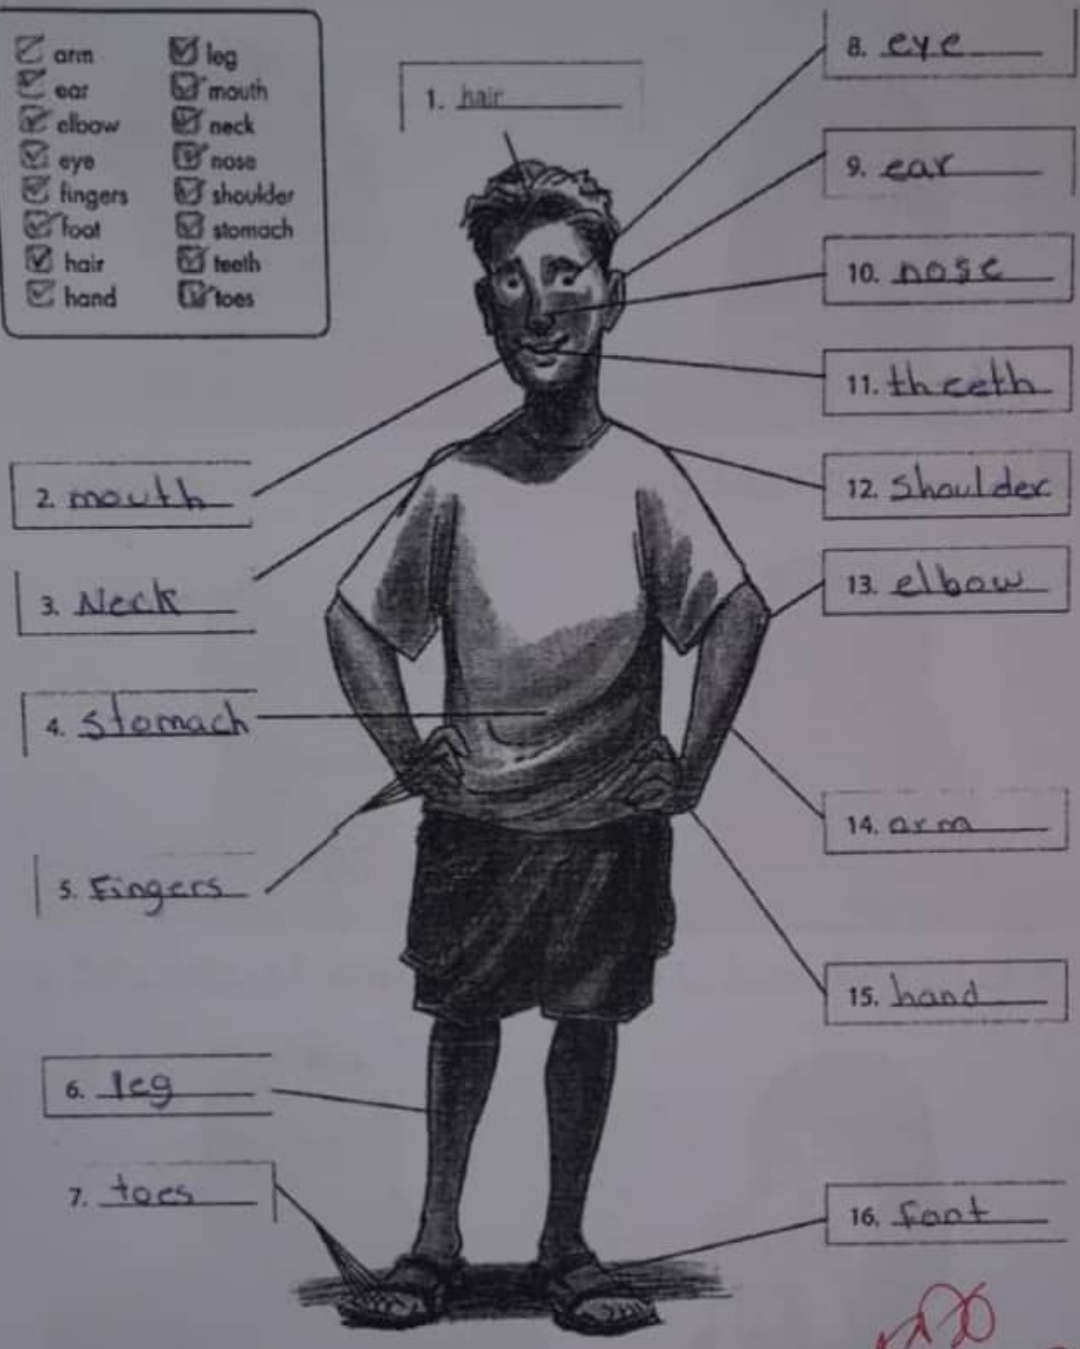 arm
ear
elbow
eye
fingers
foot
hair
hand
leg
mouth
neck
nose
shoulder
stomach
teeth
toes
1. hair
2. mouth
3. Neck
4. Stomach
5. Fingers
6. leg
7. toes
8. eye
9. ear
10. nose
11. theeth
12. Shoulder
13. elbow
14. arm
15. hand
16. Foot